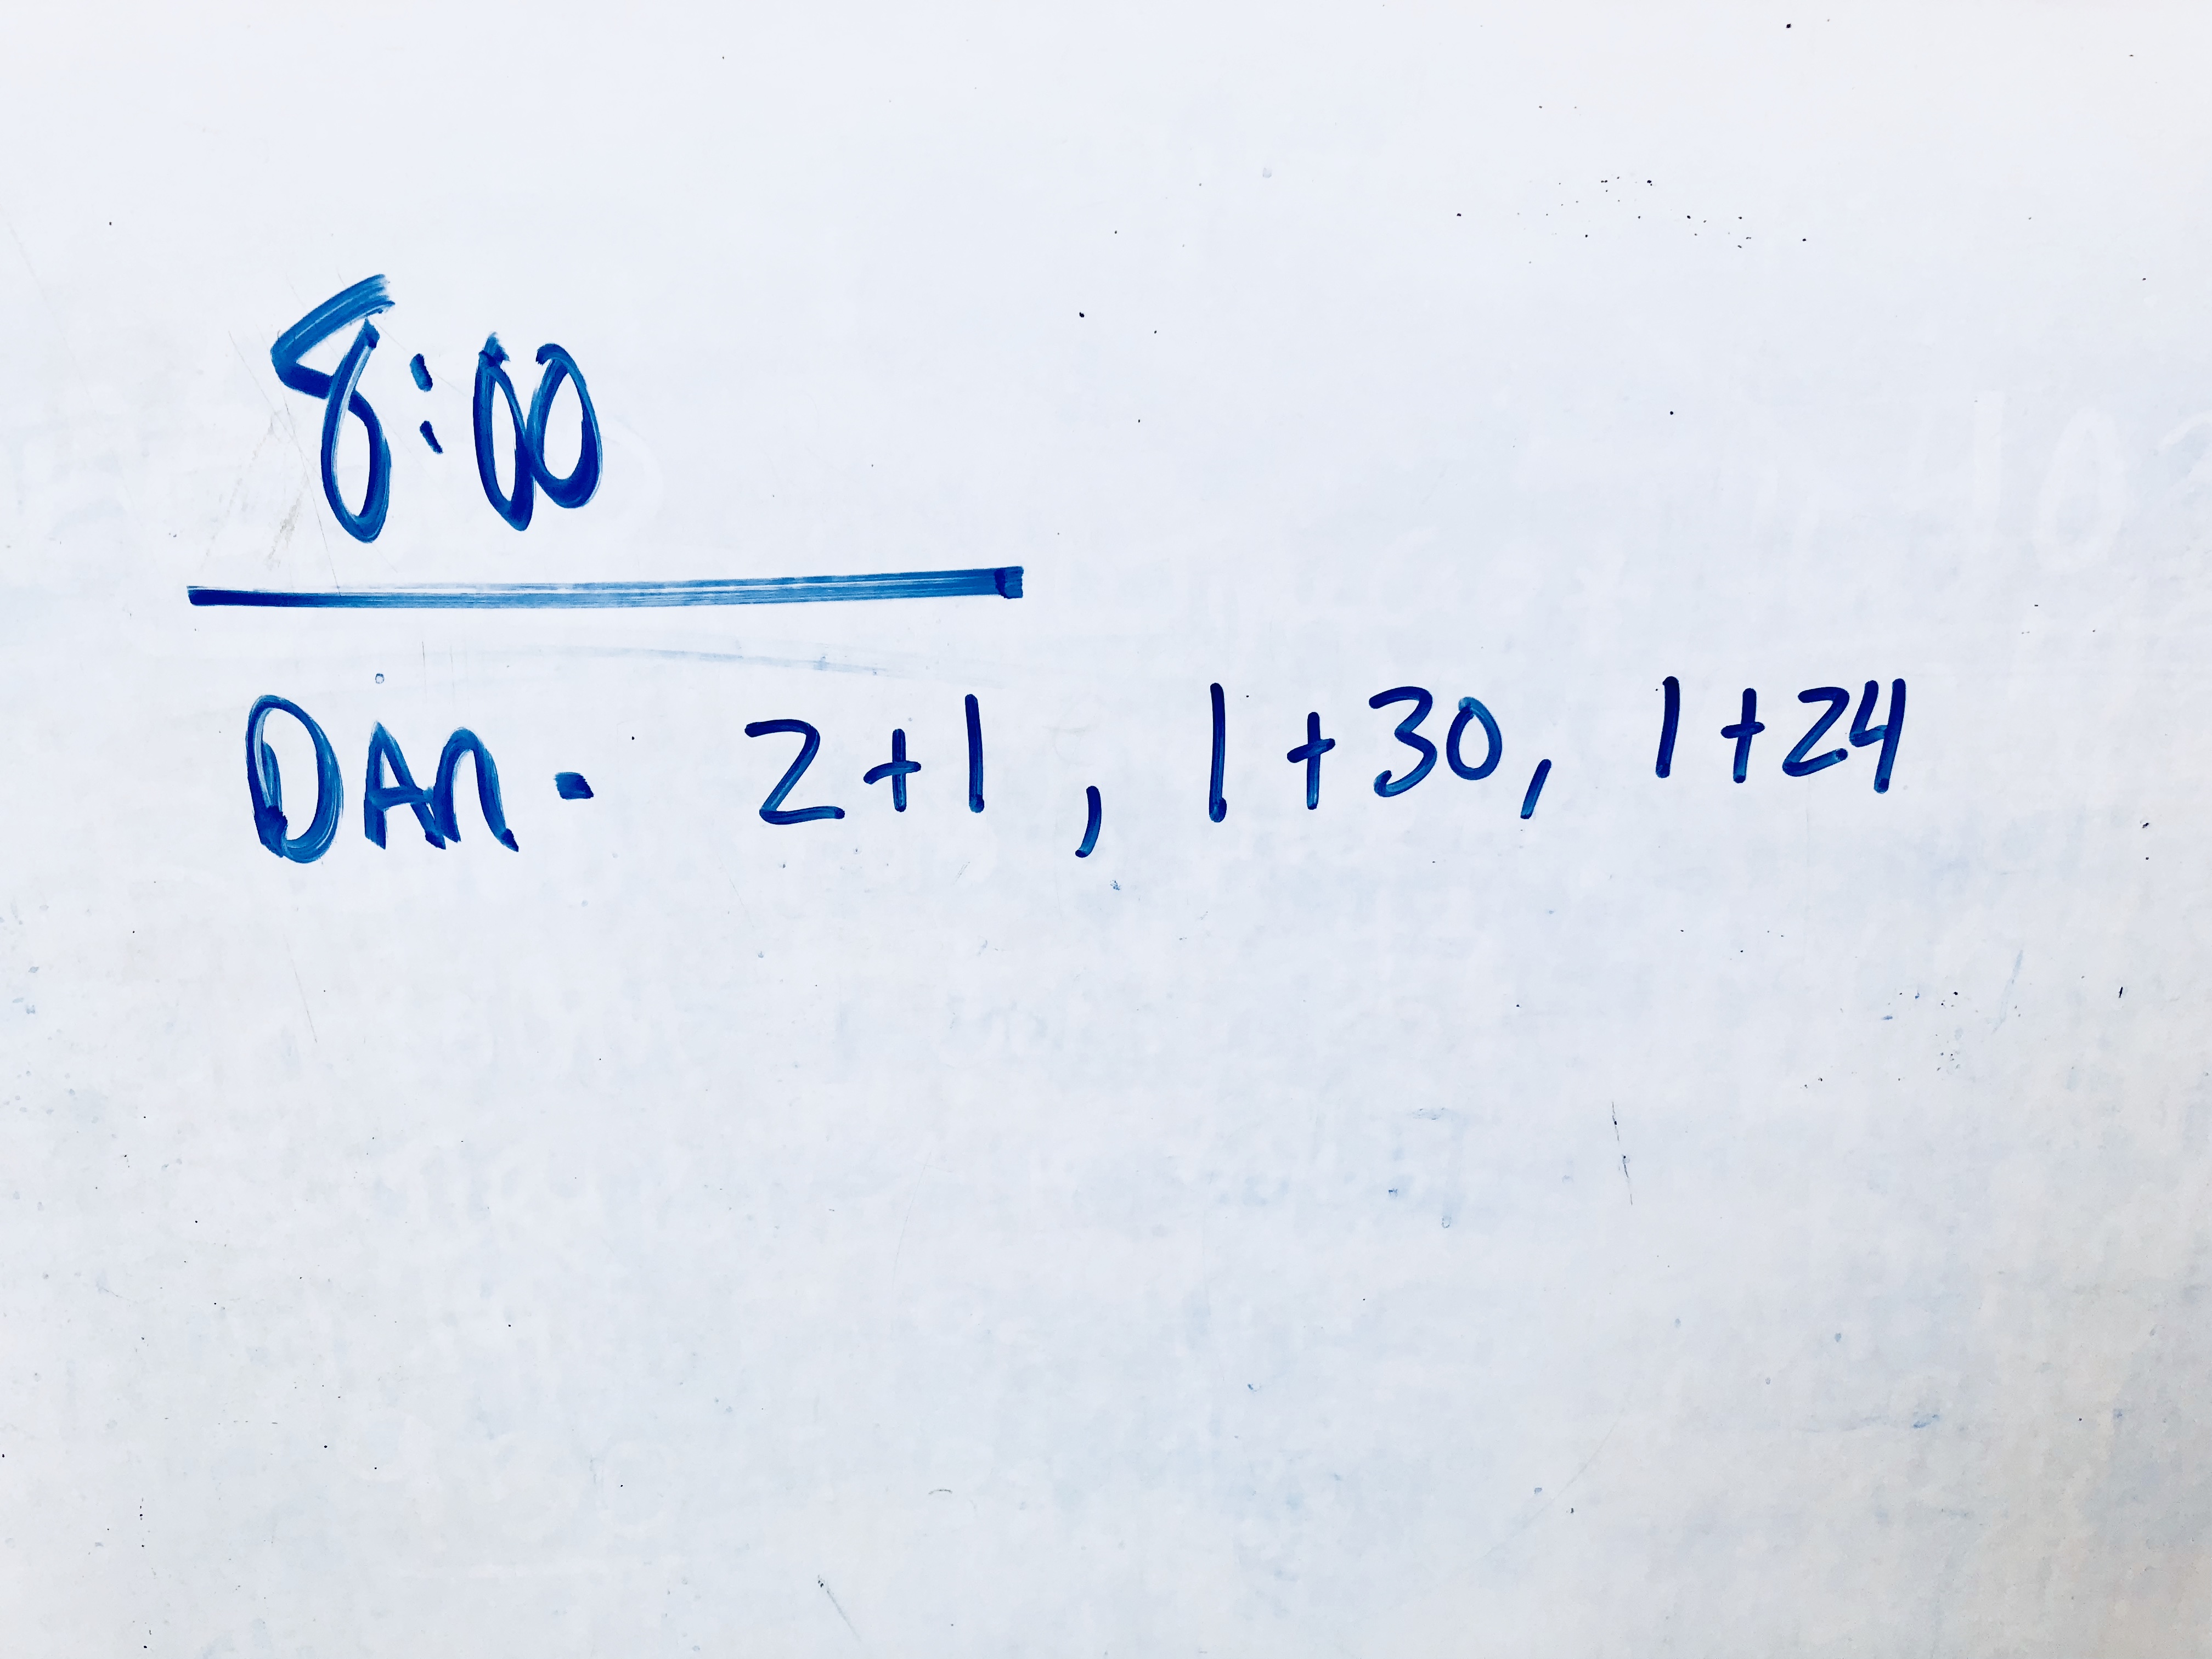 8:00
DAn - 2+1, 1+30, 1+24